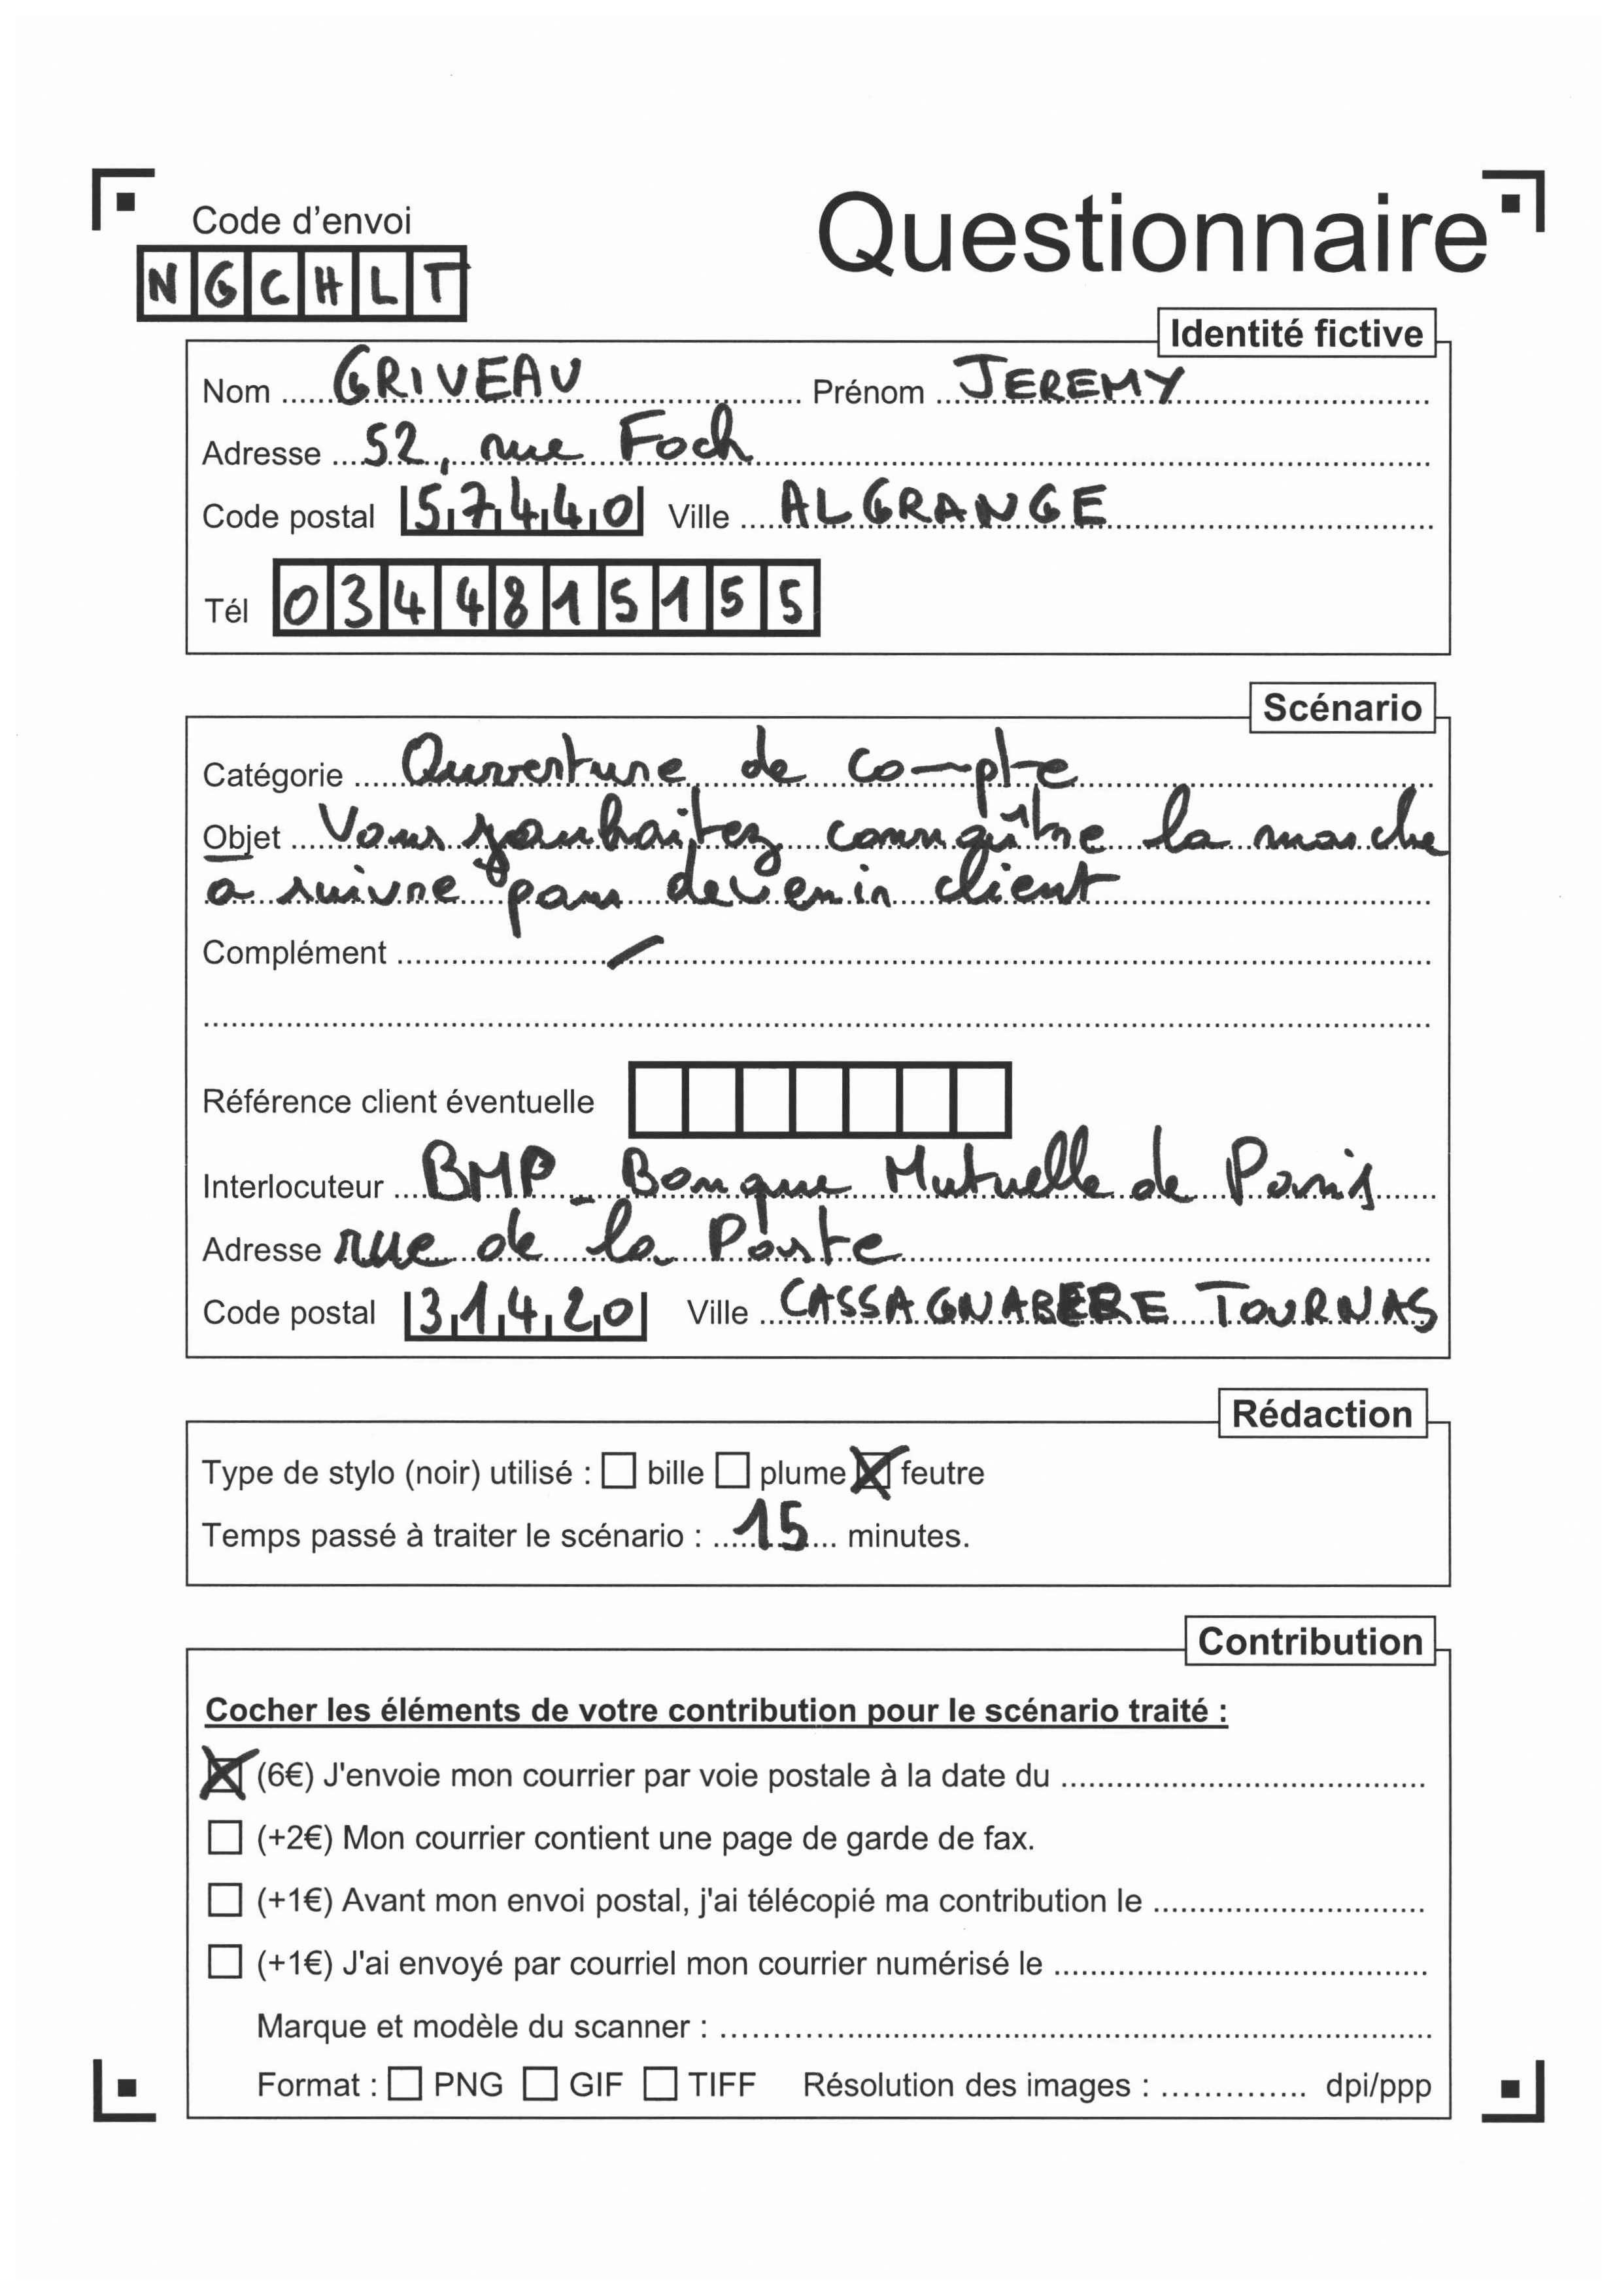 Code d'envoi
Questionnaire
NGCHLT
Identité fictive
Nom GRIVEAU Prénom JEREMY
Adresse 52, rue Foch
Code postal 57440 Ville ALGRANGE
Tél 0344815155
Scénario
Catégorie Ouverture de compte
Objet Vous souhaitez connaître la marche
a suivre pour devenir client
Complément
Référence client éventuelle
Interlocuteur BMP - Banque Mutuelle de Paris
Adresse rue de la Poste
Code postal 31420 Ville CASSAGNABERE TOURNAS
Rédaction
Type de stylo (noir) utilisé : bille plume feutre
Temps passé à traiter le scénario : 15 minutes.
Contribution
Cocher les éléments de votre contribution pour le scénario traité :
(6€) J'envoie mon courrier par voie postale à la date du
(+2€) Mon courrier contient une page de garde de fax.
(+1€) Avant mon envoi postal, j'ai télécopié ma contribution le
(+1€) J'ai envoyé par courriel mon courrier numérisé le
Marque et modèle du scanner :
Format : PNG GIF TIFF Résolution des images : dpi/ppp